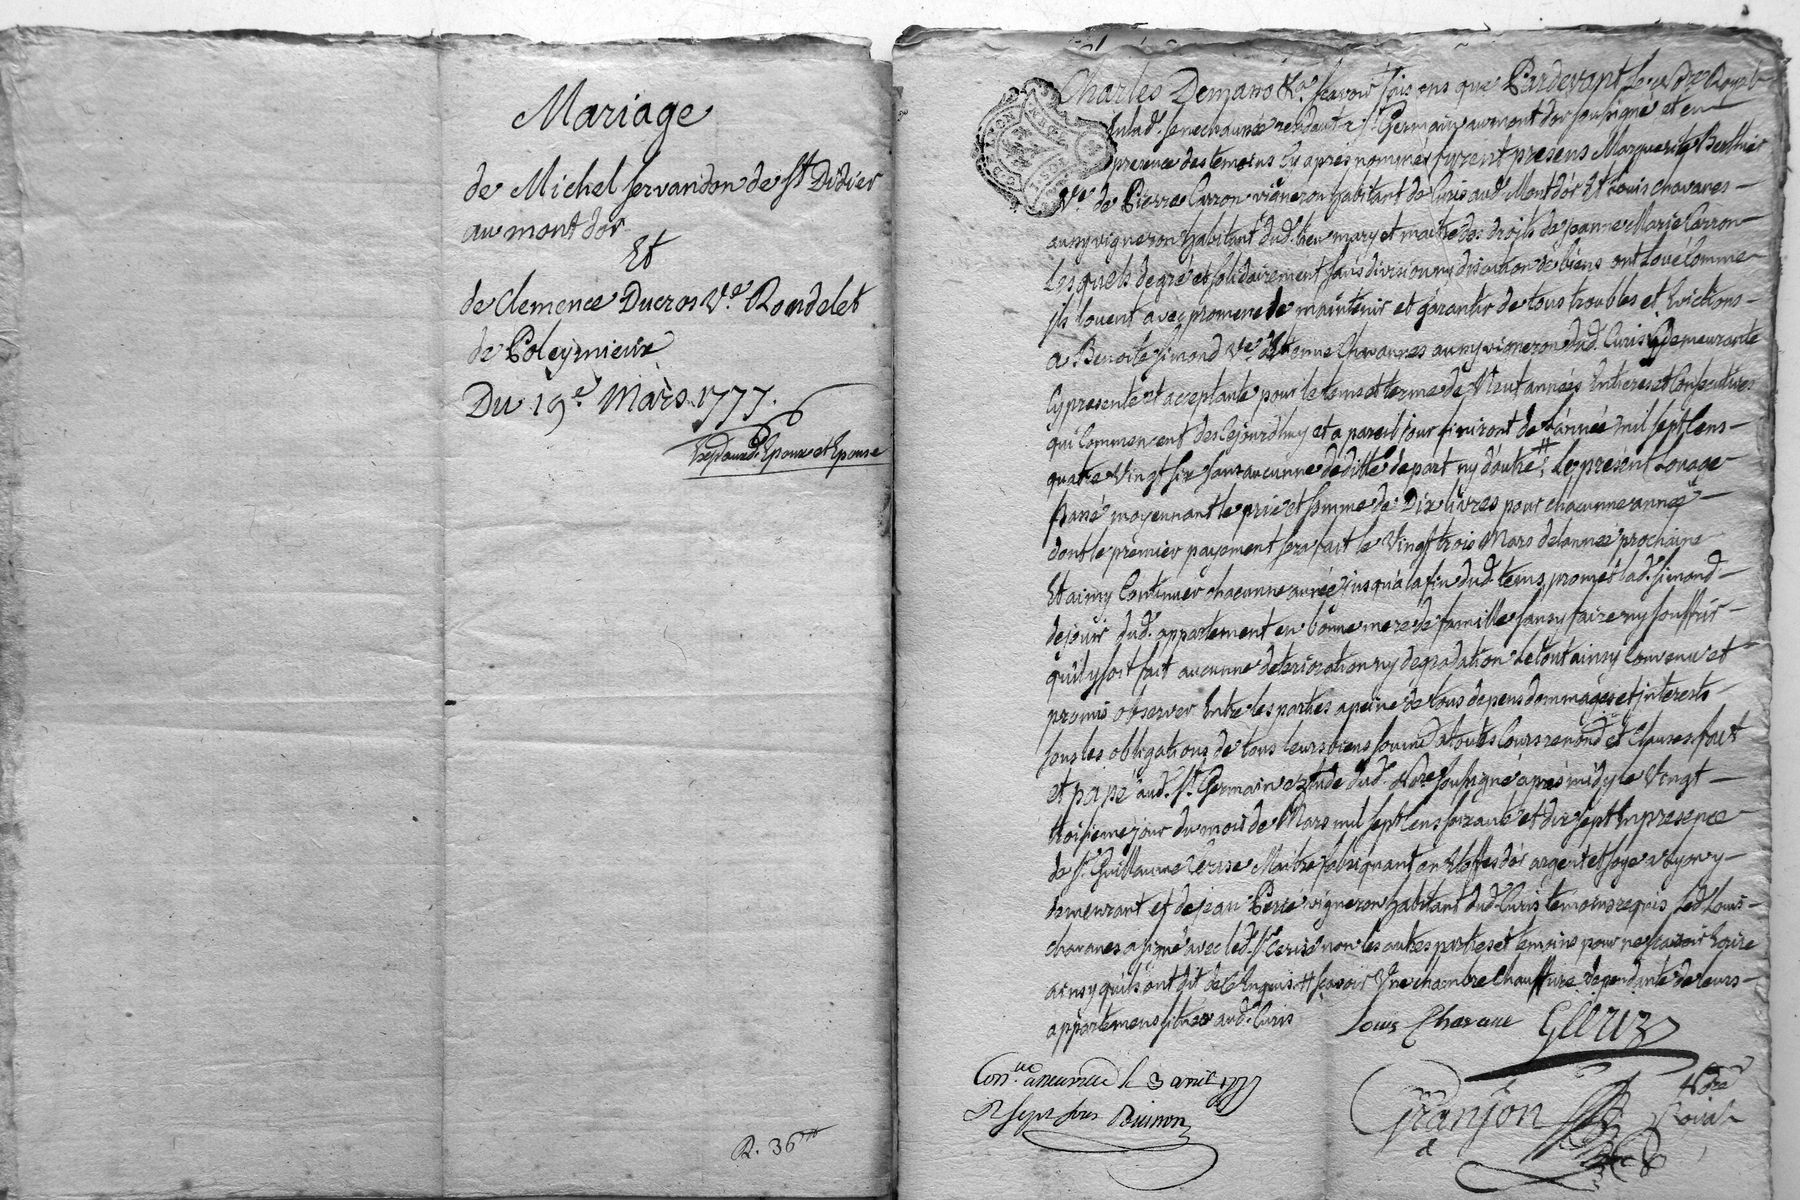 Mariage
de Michel servandon de St Didier
au mont d'or
Et
de Clemence Ducros Ve Rondelet
de Poleymieux
Du 19e Mars 1777.
Exp. pour d. Epoux et Epouse
R. 36
Charles Demans &a scavoir faisons que Pardevant le Nore Royal
en lad. senechaussée residant a St Germain au mont dor soussigné et en
presence des temoins cy apres nommés furent presens Marguerite
Ve de Pierre Carron vigneron habitant de Curis aud. Mont d'or Et Louis chavanes
aussy vigneron habitant dud. lieu mary et maitre des droits de jeanne Marie Carron
Lesquels de gré et solidairement sans division ny discution de biens ont Loué Comme
ils louent avec promesse de maintenir et garantir de tous troubles et Evictions
a Benoite simond Ve d'Etienne Chavannes aussy vigneron dud. Curis y demeurante
Cy presente et acceptante pour le tems et terme de Neuf années Entieres et Consecutives
qui Commencent des cejourdhuy et a pareil jour finiront de L'année mil sept Cens
quatre Vingt six sans aucunne déditte de part ny d'autre # Le présent Louage
passé moyennant le prix et somme de Dix livres pour chacunne année
dont le premier payement sera fait le Vingt trois Mars de lannée prochaine
Et ainsy Continuer chacunne année jusqu'a la fin dud. tems, promet lad. simond
de jouir dud. appartement en bonne mere de famille sans y faire ny souffrir
qu'il y soit fait aucunne deterioration ny degradation Le tout ainsy Convenu et
promis observer Entre les parties a peine de tous depens dommages et interests
sous les obligations de tous leurs biens soumis a toutes Cours renond. et Clauses fait
et passé aud. St Germain Etude dud. Nore soussigné après midy le Vingt
troisieme jour du mois de Mars mil sept Cens soixante et dix sept En presence
de sr Guillaume Cerise Maitre fabriquant en Etoffes d'or argent et soye a Lyon y
demeurant et de jean vigneron habitant dud. Curis temoins requis Led. Louis
chavanes a signé avec led. sr Cerise non les autres parties et temoins pour ne scavoir Ecrire
ainsy qu'ils ont dit de ce Enquis # scavoir Une chambre Chauffure dependante de leurs
appartemens situés aud. Curis
Louis Chavane GCeriz
Conlle a neuville le 3 avril 1777
R sept sous
Granjon Nore Roial